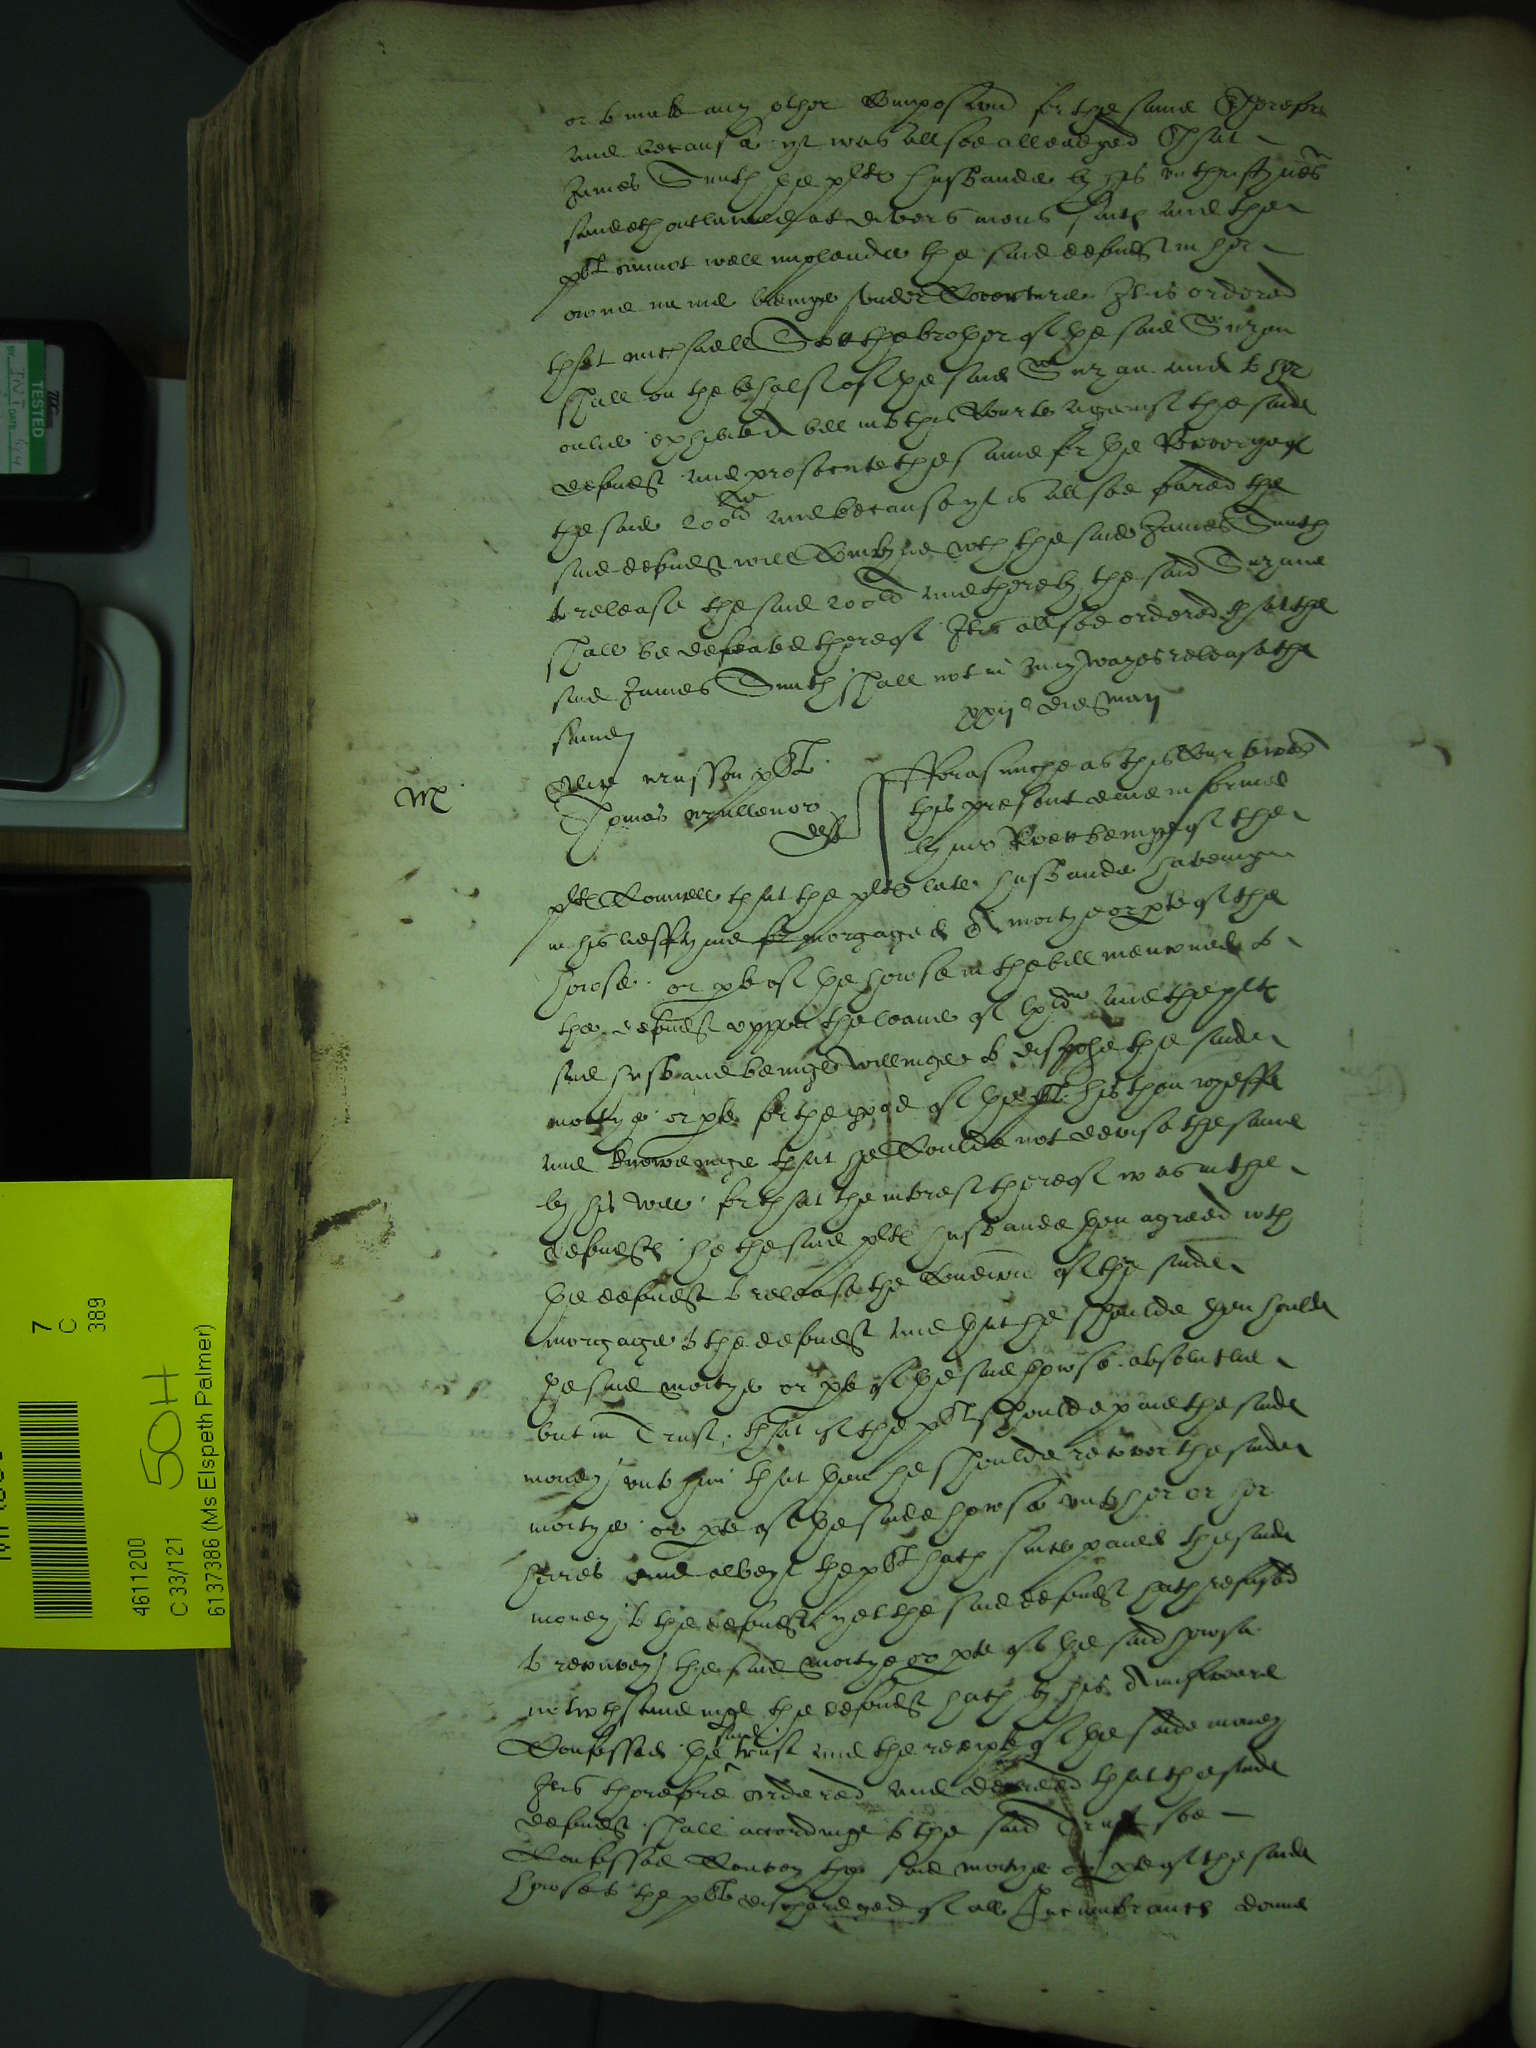 or to make any other Composicon for the same Therefore
and because yt was allsoe alleadged That
James Smith the pltes husbande by his unthriftynes
standeth outlawed at divers mens suite and the
plt cannot well impleade the said defendt in her
owne name beinge under Coverture It is ordered
that the brother of the said Suzan
shall on the behalf of the said Suzan and to her
onlie exhibite a bill into this Courte against the said
defendt and prosecute the same for the Recovery of
the said 200li and because yt is allsoe feared the
said defendt will Combyne wth the said James Smith
to release the said 200li and thereby the said Suzane
shall be defeated thereof It is allsoe ordered that the
said James Smith shall not in any wayes release the
same
xxijo die Maij
plt
Thomas
deft
Forasmuche as this Court was
this present daie informed
by mr beinge of the
pltes Councell that the pltes late husbande haveinge
in his lieff tyme morgaged A moitye or pte of the
howse or pte of the howse in the bill mencioned to
the defendt uppon the loane of and the pltes
said husband beinge willinge to dispose the saide
moitye or pte for the good of the plt his then wyeffe
and knoweinge that he Coulde not devise the same
by his will for that the intrest thereof was in the
defendt he the said pltes husbande then agreed wth
the defendt to release the Condicon of the saide
morgage to the defendt and that he shoulde then houlde
the said moitye or pte of the said howse absolutlie
but in Trust, that yf the plt shoulde paie the saide
money unto him that then he shoulde reconvey the saide
moitye or pte of the saide howse unto her or her
heires and albeyt the plt hath since paied the saide
money to the defendt yet the said defendt hath refused
to reconvey the said moitye or pte of the said howse
notwthstandinge the defendt hath by his Aunsweare
Confessed the said trust and the receipte of the saide money
It is therefore ordered and decreed that the saide
defendt shall accordinge to the said Trust soe
Confessed Convey the said moitye or pte of the saide
howse to the plt dischardged of all Incumbrances donne
TESTED
DATE
7
C
389
50H
4611200
C 33/121
6137386 (Ms Elspeth Palmer)